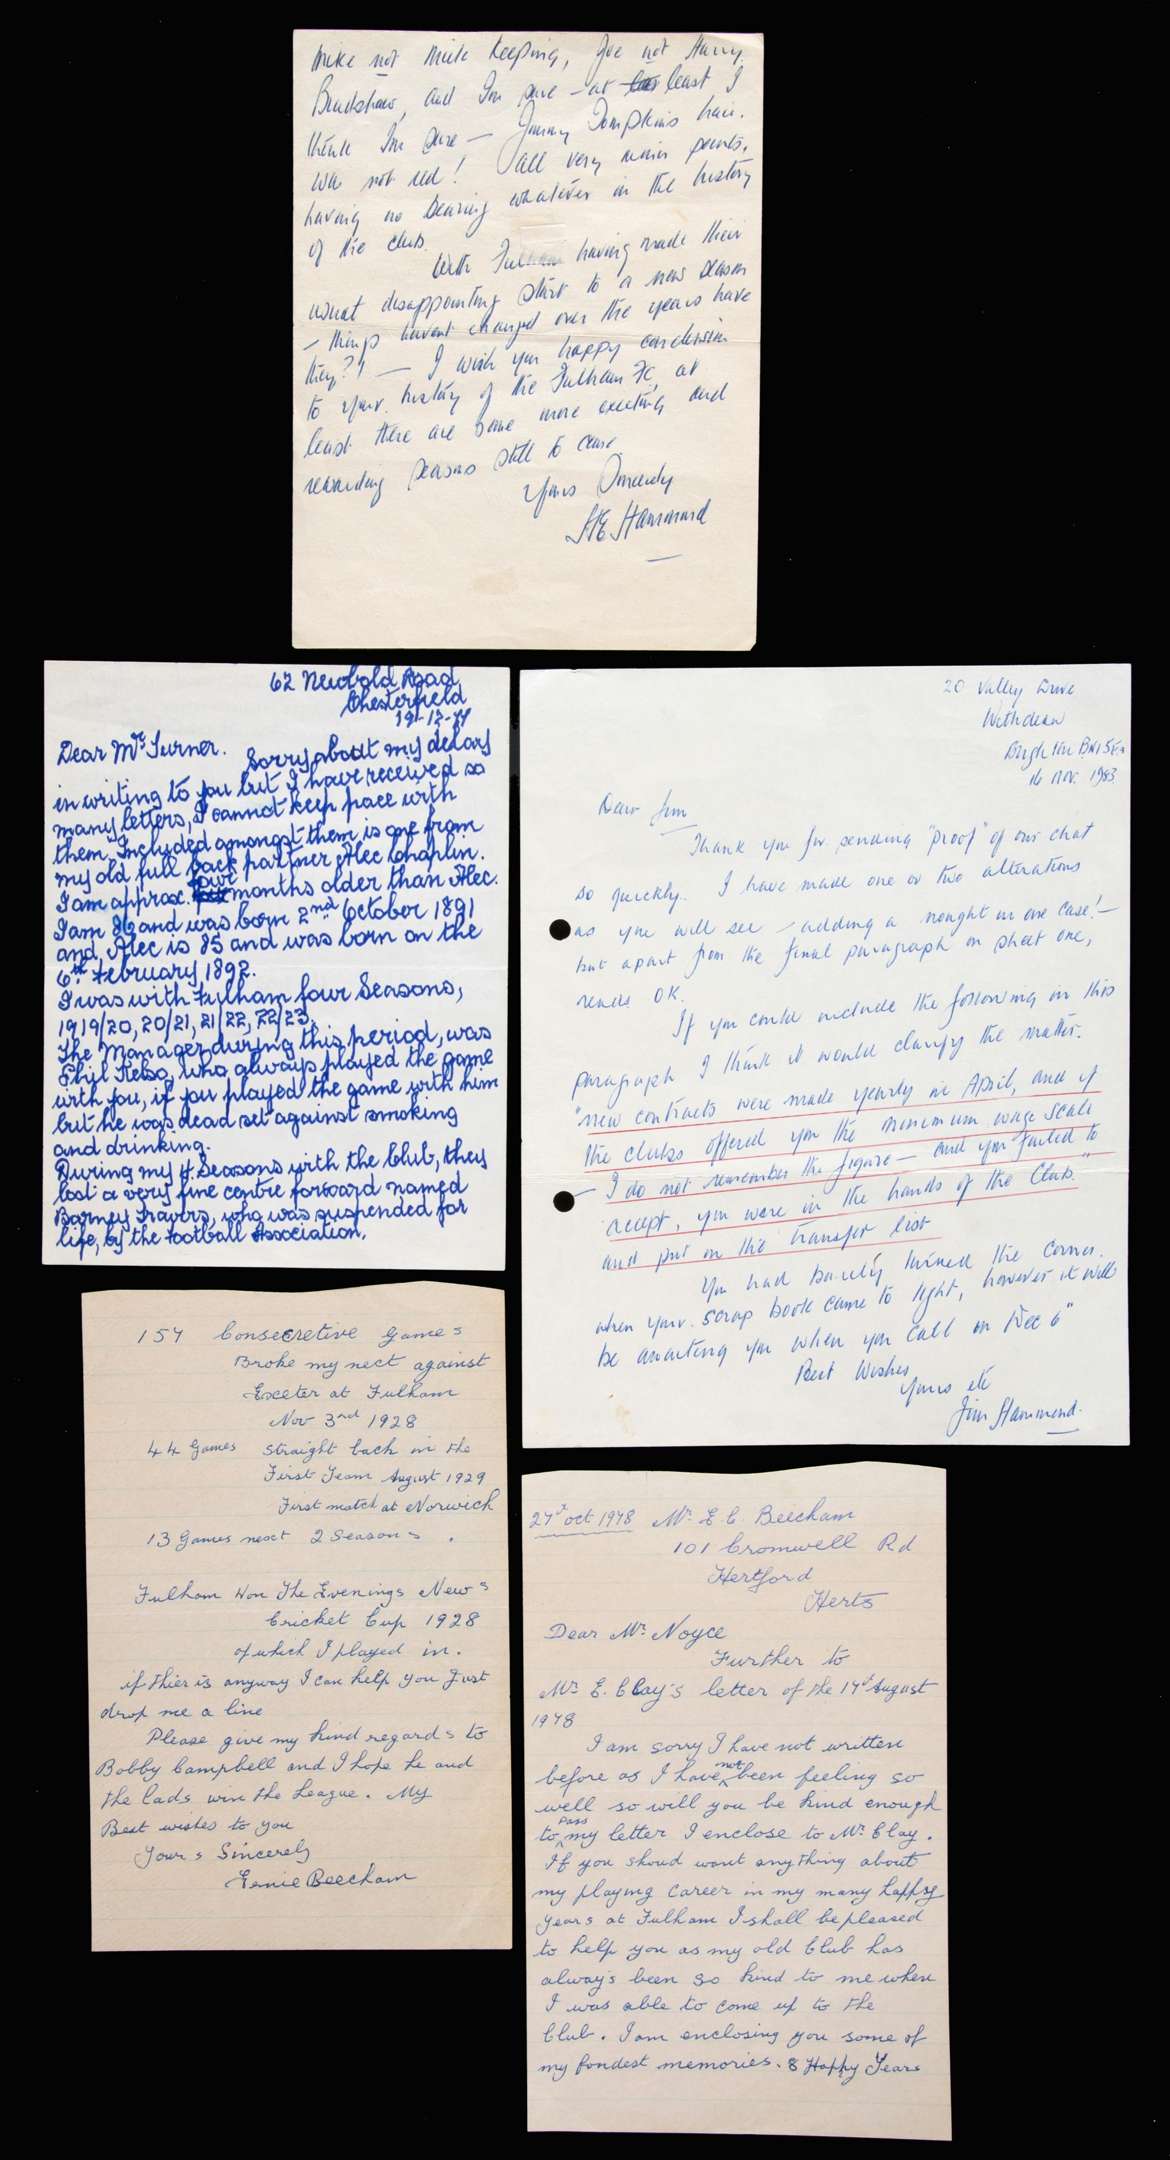 Mike not Mick Keeping, Joe not Harry
Bradshaw, and I'm sure – at least I
think I'm sure – Jimmy Tompkins hair.
was not red! All very minor points.
having no bearing whatever in the history
of the club.
With Fulham having made their
usual disappointing start to a new season
– things havent changed over the years have
they?! — I wish you happy conclusion
to your history of the Fulham FC, at
least there are some more exciting and
rewarding seasons still to come.
Yours Sincerely
H E Hammond
62 Newbold Road
Chesterfield
19-12-77
Dear Mr. Turner.
Sorry about my delay
in writing to you but I have received so
many letters, I cannot keep pace with
them. Included amongst them is one from
my old full back partner Alec Chaplin.
I am approx. four months older than Alec.
I am 86 and was born 2nd October 1891
and Alec is 85 and was born on the
6th February 1892.
I was with Fulham four Seasons,
1919/20, 20/21, 21/22, 22/23.
The Manager during this period, was
Phil Kelso, who always played the game
with you, if you played the game with him
but he was dead set against smoking
and drinking.
During my 4 Seasons with the Club, they
lost a very fine centre forward named
Barney Travers, who was suspended for
life, by the Football Association.
20 Valley Drive
Withdean
Brighton BN1 5
16 Nov. 1983
Dear Jim
Thank you for sending "proof" of our chat
so quickly. I have made one or two alterations
as you will see – adding a nought in one case! –
but apart from the final paragraph on sheet one,
reads OK.
If you could include the following in this
paragraph I think it would clarify the matter.
"new contracts were made yearly in April, and if
the clubs offered you the maximum wage scale
– I do not remember the figure – and you failed to
accept, you were in the hands of the Club."
and put on the transfer list
You had barely turned the corner.
when your. scrap book came to light, however it will
be awaiting you when you call on Dec 6"
Best Wishes
Yours etc
Jim Hammond.
157 Consecretive Games
Broke my nect against
Exeter at Fulham
Nov 3rd 1928
44 Games straight back in the
First Team August 1929
First match at Norwich
13 Games next 2 Seasons .
Fulham Won The Evenings News
Cricket Cup 1928
of which I played in.
if thier is anyway I can help you Just
drop me a line
Please give my kind regards to
Bobby Campbell and I hope he and
the lads win the League. My
Best wishes to you
Yours Sincerely
Ernie Beecham
27th Oct 1978 Mr. E C. Beecham
101 Cromwell Rd
Hertford
Herts
Dear Mr. Noyce
Further to
Mr. E. Clay's letter of the 17th August
1978
I am sorry I have not written
before as I have not been feeling so
well so will you be kind enough
to pass my letter I enclose to Mr. Clay.
If you shoud want anything about
my playing career in my many happy
years at Fulham I shall be pleased
to help you as my old Club has
always been so kind to me when
I was able to come up to the
Club. I am enclosing you some of
my fondest memories. 8 Happy Years